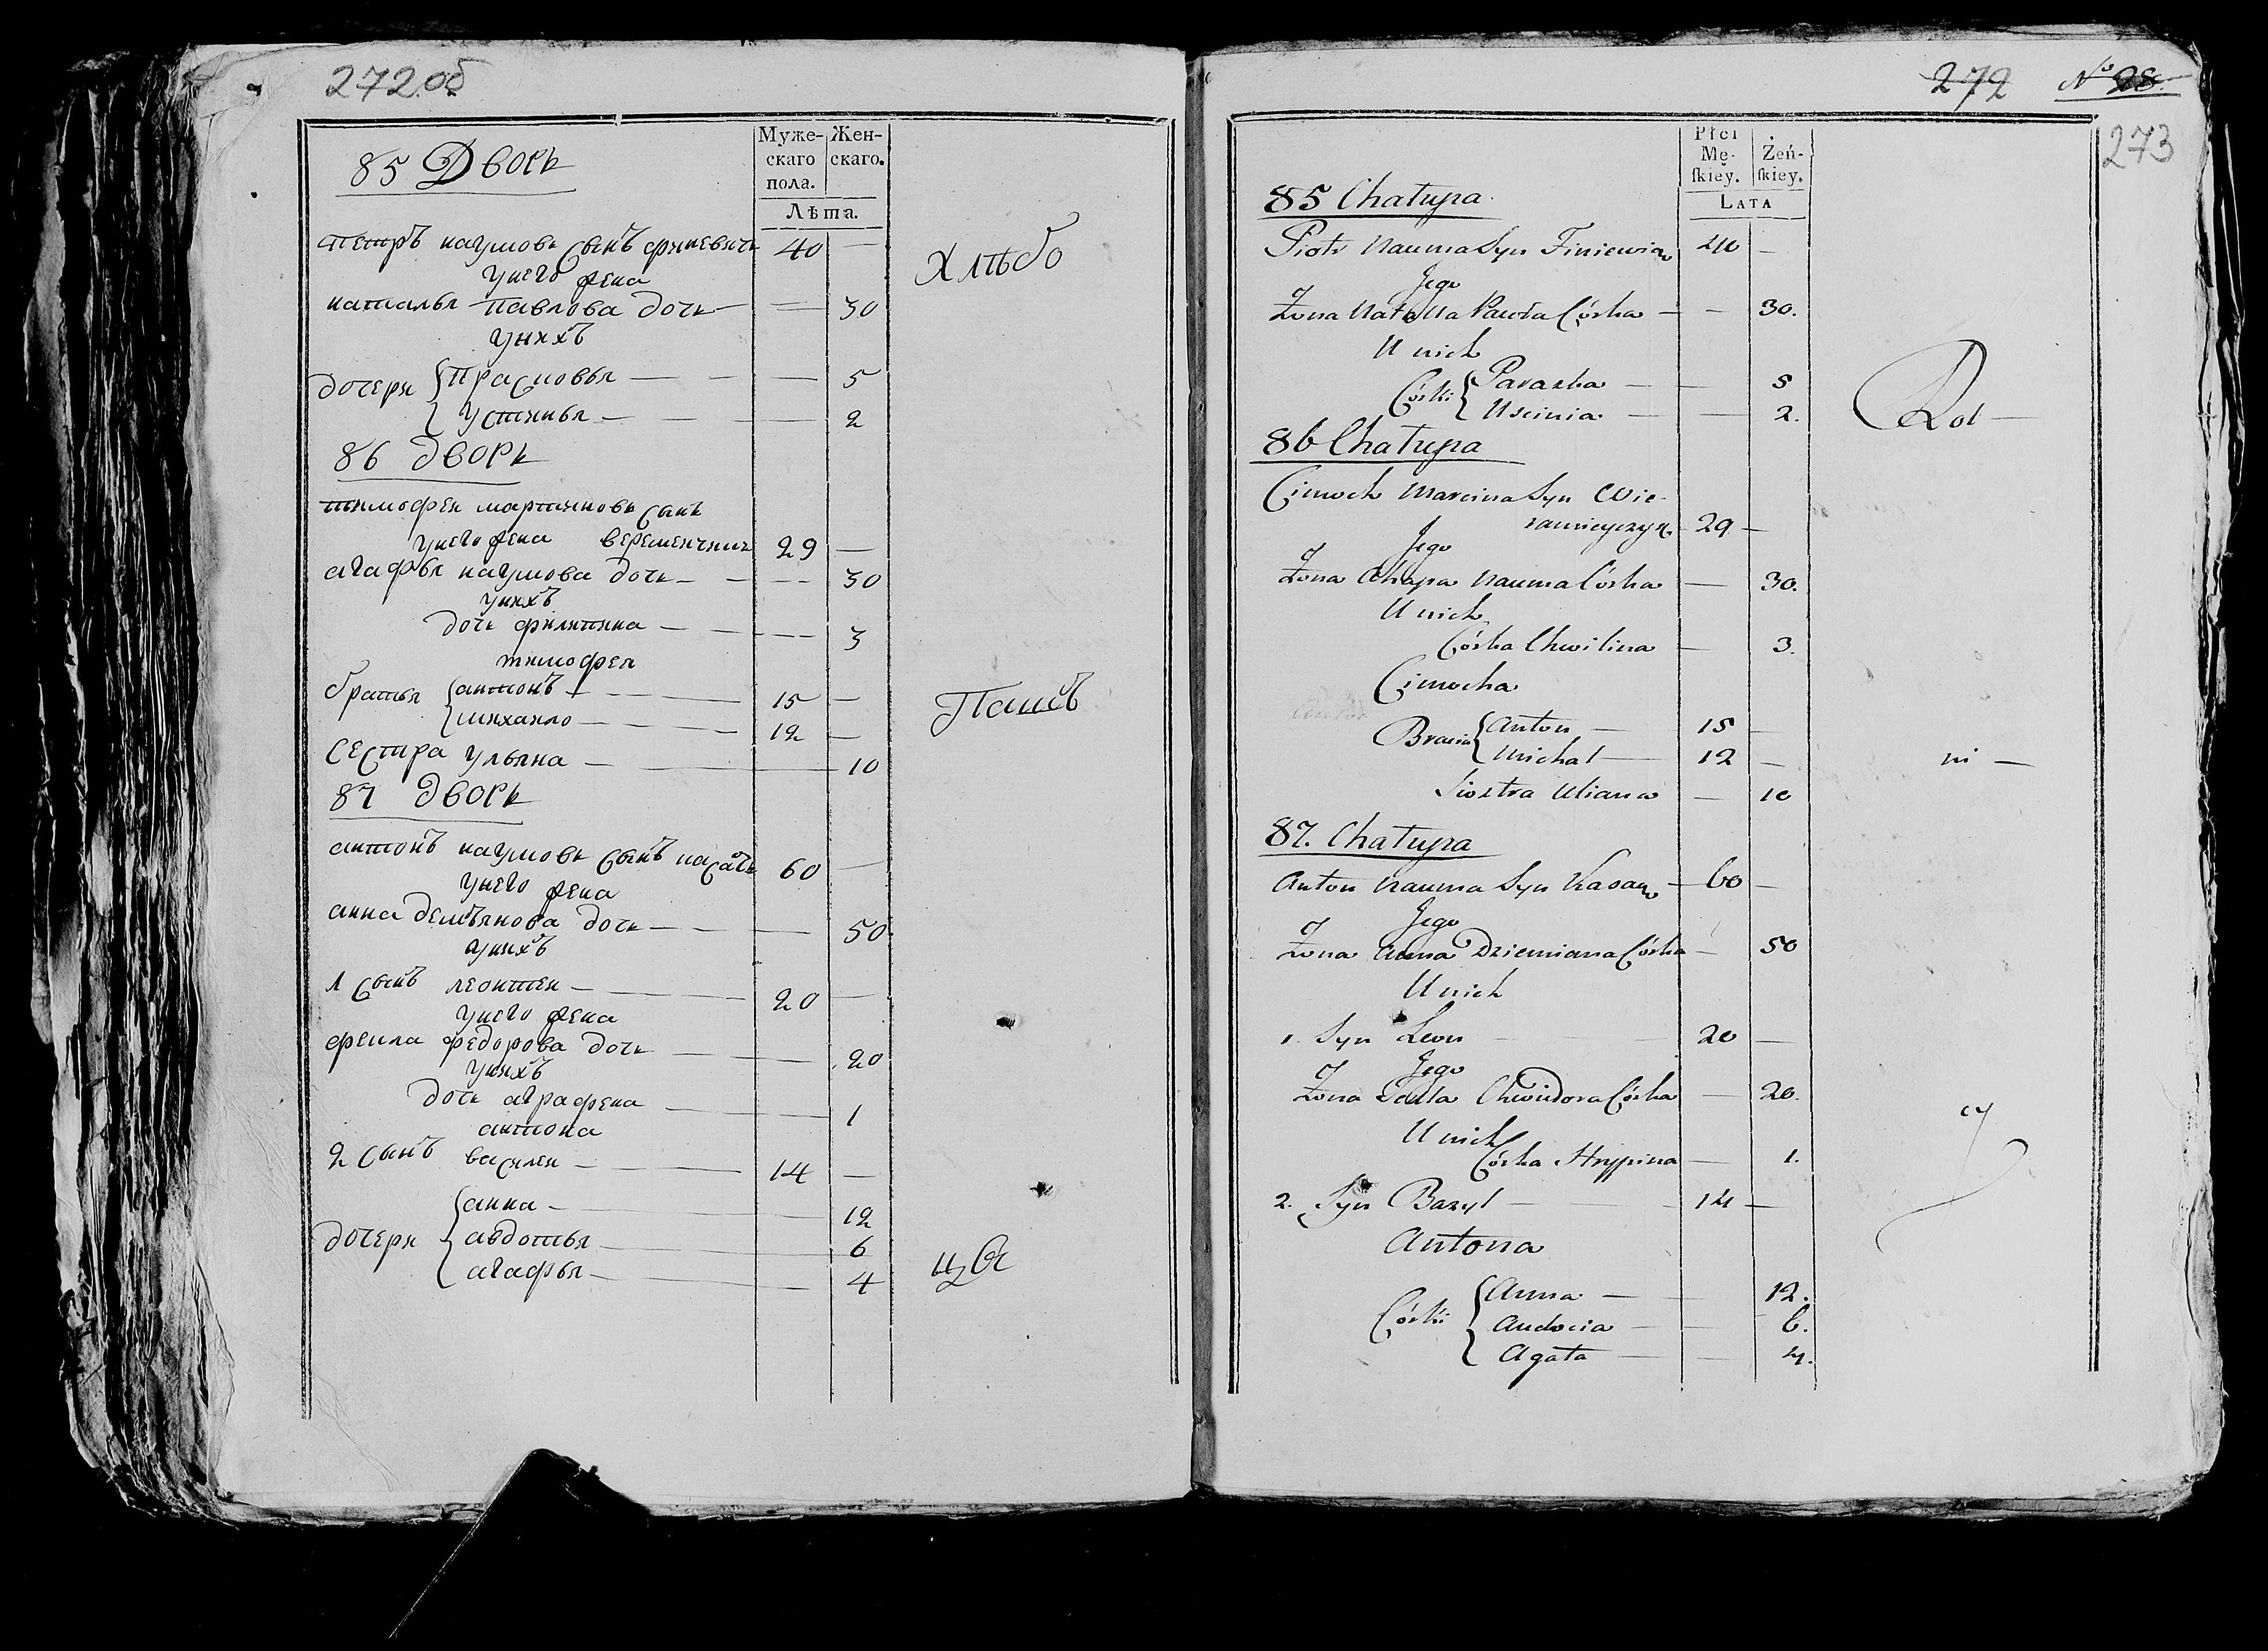 272об
85 Дворъ
Муже-
скаго
пола.
Жен-
скаго.
Лѣта.
Петръ наумовъ Сынъ финевичь 40 —
Унего жена
наталья павлова дочь — — 30
Унихъ
дочери { Прасковья — — — 5
Устинья — — — 2
Хлѣбо
86 дворъ
тимофеи мартиновъ Сынъ
Веременчикъ 29 —
Унего жена
агафья наумова дочь — — — 30
Унихъ
дочь филипина — — — 3
тимофея
братья { антонъ — — 15 —
михаило — — 12 —
Сестра Ульяна — — 10
Пашъ
87 дворъ
антонъ наумовъ Сынъ касачь 60 —
Унего жена
анна демьянова дочь — — 50
Унихъ
1 Сынъ леонтеи — — 20 —
Унего жена
фекла федорова дочь — — 20
Унихъ
дочь аграфена — — 1
антона
2 Сынъ василеи — — 14 —
дочери { анна — — 12
авдотья — — 6
агафья — — 4
цы
272 № 28.
273
Płci
Mę-
skiey.
Żeń-
skiey.
Lata
85 Chałupa.
Piotr Nauma Syn Finiewicz 40 —
Jego
Żona Natalla Pawła Córka — — 30.
U nich
Córki { Paraska — — 5
Uscinia — — 2.
Rol —
86 Chałupa
Cimoch Marcina Syn Wie-
ramieyczyk 29 —
Jego
Żona Ahapa Nauma Córka — 30.
U nich
Córka Chwilina — 3.
Cimocha
Bracia { Anton — 15 —
Michał — 12 —
Siostra Uliana — 10
ni —
87. Chałupa
Anton Nauma Syn Kasacz — 60 —
Jego
Żona Anna Dziemiana Córka — 50
U nich
1. Syn Leon 20 —
Jego
Żona Tekla Chwiedora Córka — 20.
U nich
Córka Hrypina — 1.
2. Syn Bazyl — 14 —
Antona
Córki { Anna — 12.
Audocia — 6.
Agata — 4.
cy